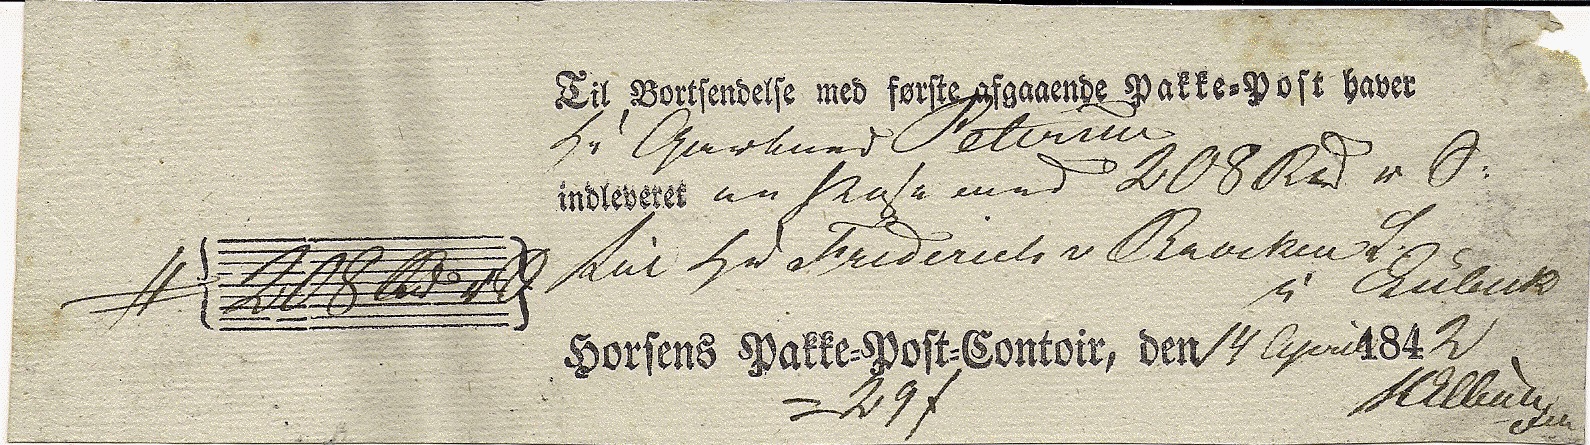 Til Bortsendelse med første afgaaende Pakke-Post haver
Hr Petersen
indleveret en med 208 Rbd
til Hr Friederich v Broecken
i Lübeck
208 Rbd
Horsens Pakke-Post-Contoir, den 14 April 1842
= 29 f